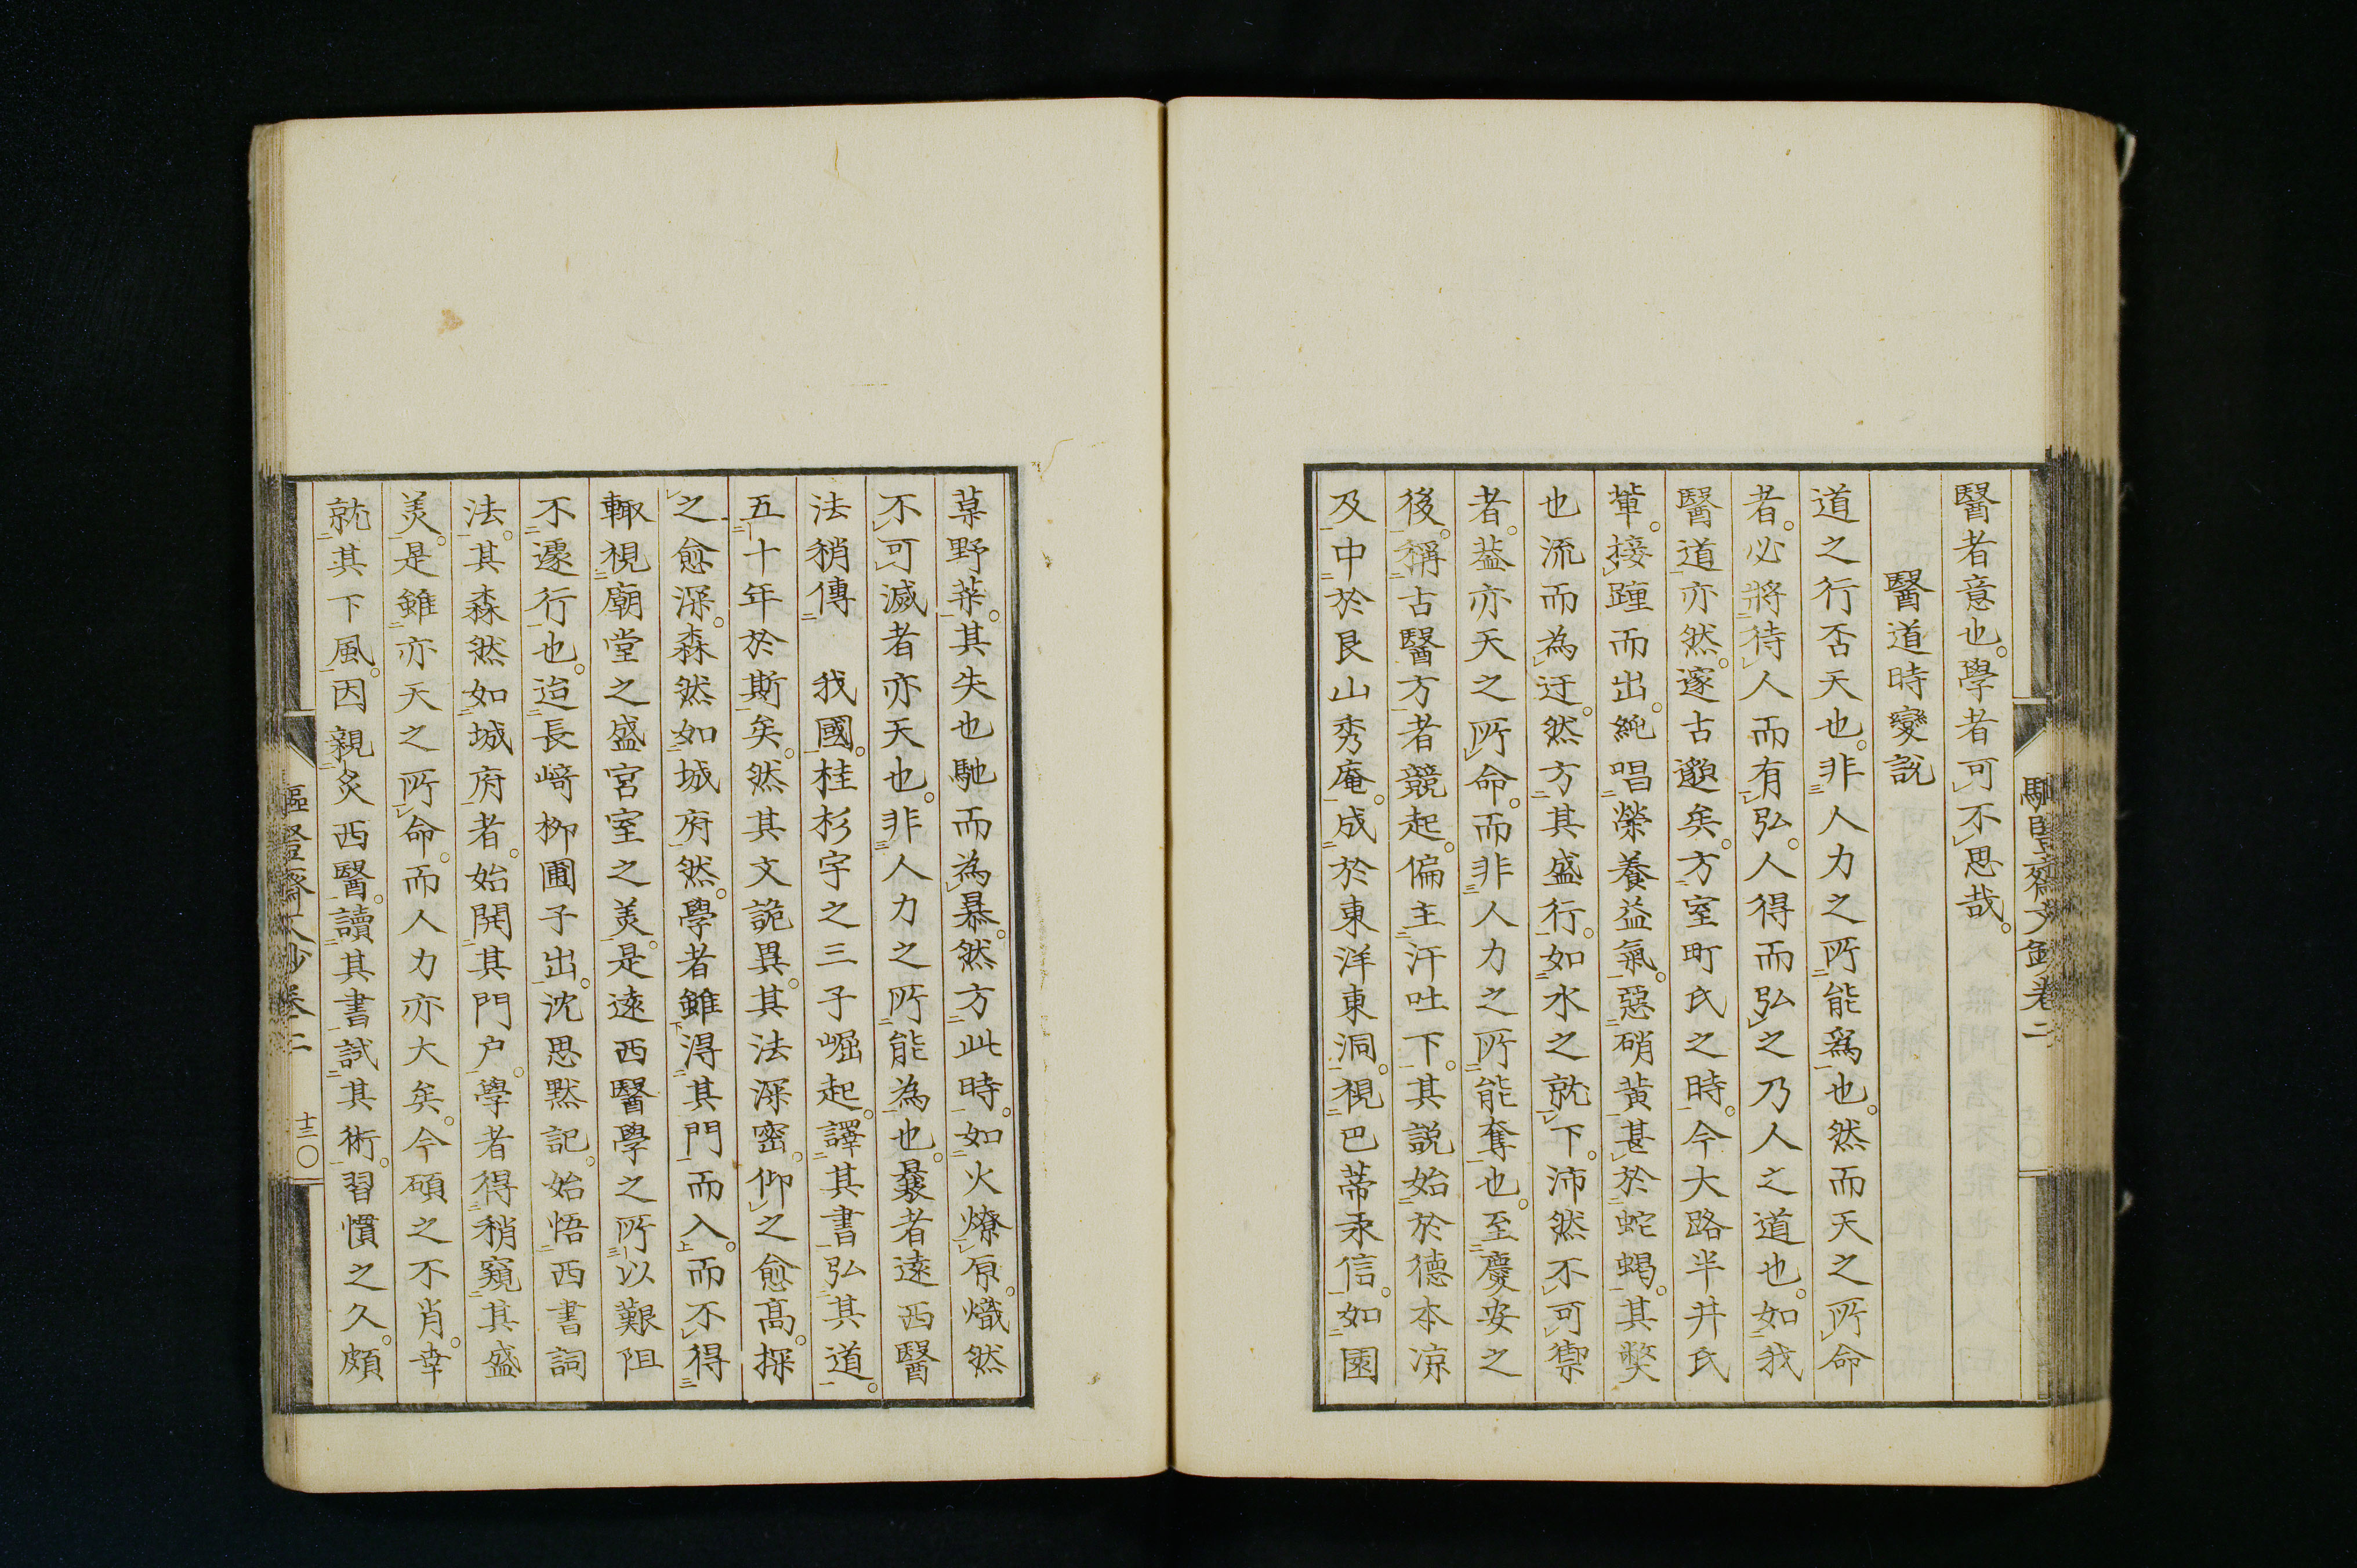 醫者意也。學者可不思哉。
醫道時變說
道之行否天也。非人力之所能爲也。然而天之所命
者。必將待人而有弘。人得而弘之乃人之道也。如我
醫道亦然。邃古邈矣。方室町氏之時。今大路半井氏
輩。接踵而出。純唱榮養益氣。惡硝黃甚於蛇蝎。其弊
也流而為迂。然方其盛行。如水之就下。沛然不可禦
者。葢亦天之所命。而非人力之所能奪也。至慶安之
後。稱古醫方者競起。偏主汗吐下。其説始於德本凉
及中於艮山秀庵。成於東洋東洞。視巴蒂承信。如園
草野菜。其失也馳而為暴。然方此時。如火燎原。熾然
不可滅者亦天也。非人力之所能為也。曩者遠西醫
法稍傳 我國。桂杉宇之三子崛起。譯其書弘其道。
五十年於斯矣。然其文詭異。其法深密。仰之愈高。探
之愈深。森然如城府然。學者雖得其門而入。而不得
輙視廟堂之盛宮室之美。是遠西醫學之所以艱阻
不遽行也。迨長﨑柳圃子出。沈思默記。始悟西書詞
法。其森然如城府者。始開其門户。學者得稍窺其盛
美。是雖亦天之所命。而人力亦大矣。今碩之不肖。幸
就其下風。因親炙西醫。讀其書試其術。習慣之久。頗
卷二
卷二
十三〇